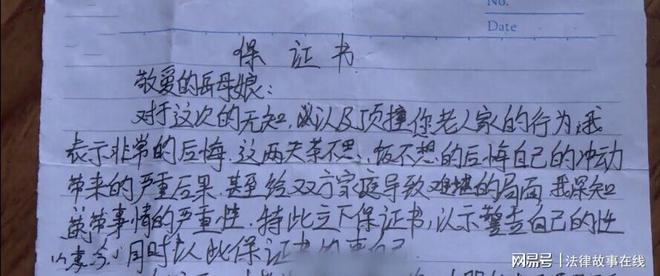 No.
Date
保证书
敬爱的岳母娘:
对于这次的无知,以及顶撞你老人家的行为,我
表示非常的后悔.这两天茶不思,饭不想的后悔自己的冲动
带来的严重后果.甚至给双方家庭导致难堪的局面,我深知
事情的严重性.特此立下保证书,以示警告自己的性
同时以此保证书
网易号 | 法律故事在线